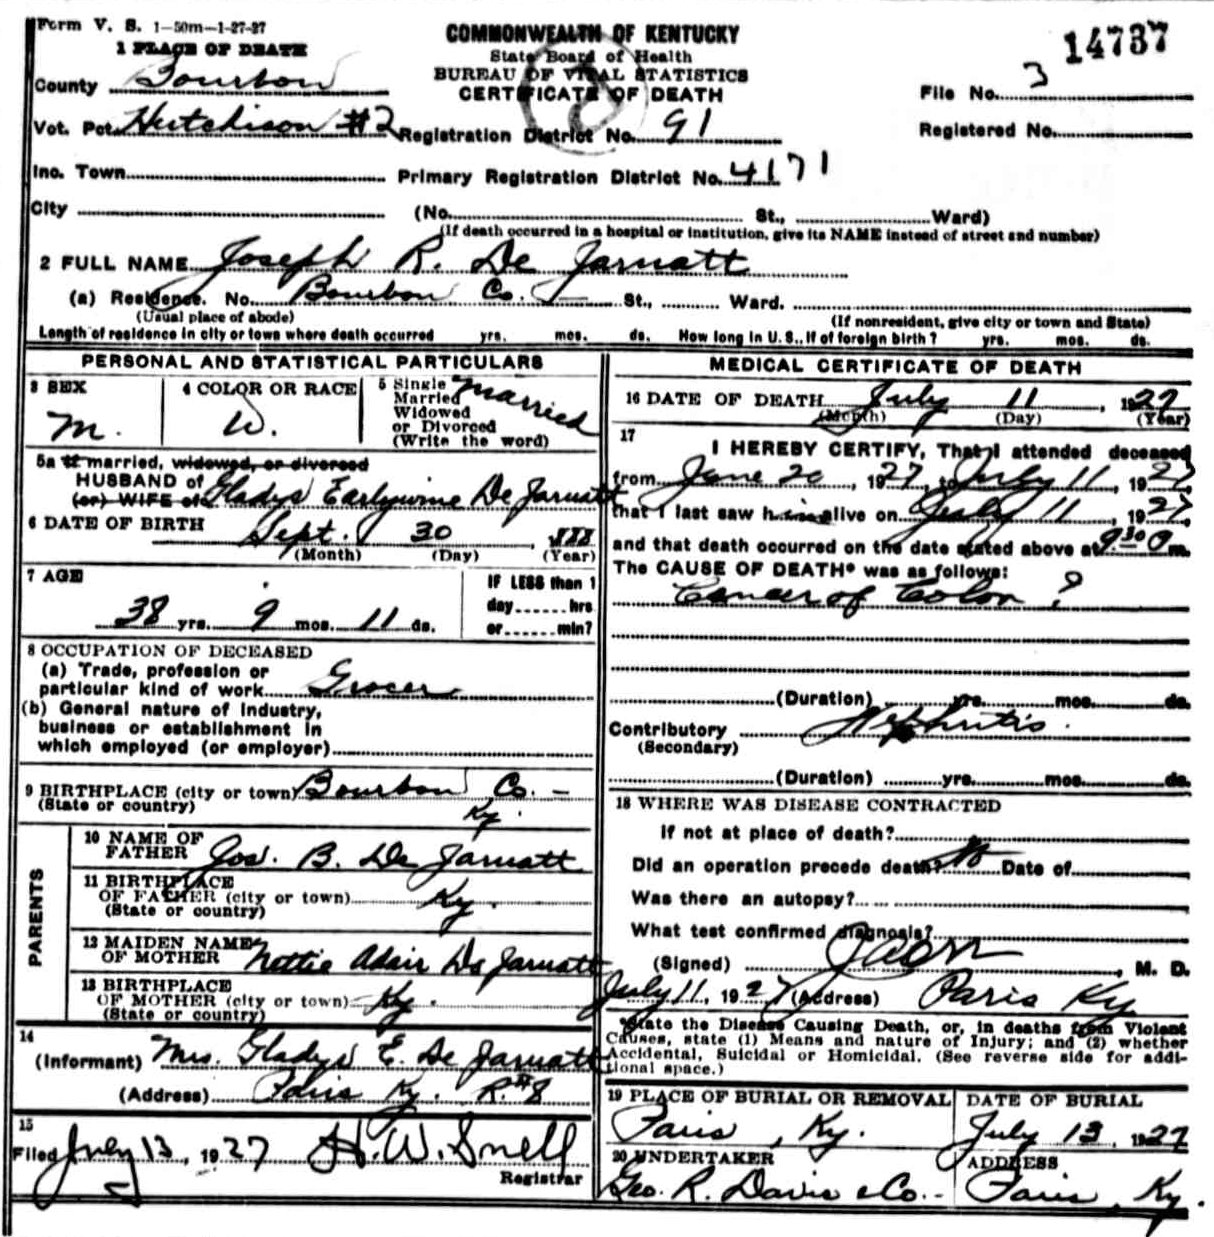 Form V. S. 1-50m-1-27-27
COMMONWEALTH OF KENTUCKY
State Board of Health
BUREAU OF VITAL STATISTICS
CERTIFICATE OF DEATH
14737
3
2
1 PLACE OF DEATH
County Bourbon
File No.
Vot. Pct. Hutchison #2 Registration District No. 91
Registered No.
Inc. Town Primary Registration District No. 4171
City (No. St., Ward)
(If death occurred in a hospital or institution, give its NAME instead of street and number)
2 FULL NAME Joseph R. De Jarnatt
(a) Residence. No. Bourbon Co. St., Ward.
(Usual place of abode) (If nonresident, give city or town and State)
Length of residence in city or town where death occurred yrs. mos. ds. How long in U. S., if of foreign birth? yrs. mos. ds.
PERSONAL AND STATISTICAL PARTICULARS
3 SEX
M.
4 COLOR OR RACE
W.
5 Single
Married
Widowed
or Divorced
(Write the word)
Married
5a If married, widowed, or divorced
HUSBAND of
(or) WIFE of Gladys Earlywine De Jarnatt
6 DATE OF BIRTH Sept. 30, 1888
(Month) (Day) (Year)
7 AGE
38 yrs. 9 mos. 11 ds.
IF LESS than 1
day ...... hrs
or ...... min?
8 OCCUPATION OF DECEASED
(a) Trade, profession or
particular kind of work Grocer
(b) General nature of industry,
business or establishment in
which employed (or employer)
9 BIRTHPLACE (city or town) Bourbon Co. -
(State or country) Ky.
PARENTS
10 NAME OF
FATHER Jos. B. De Jarnatt
11 BIRTHPLACE
OF FATHER (city or town) Ky.
(State or country)
12 MAIDEN NAME
OF MOTHER Nettie Adair De Jarnatt
13 BIRTHPLACE
OF MOTHER (city or town) Ky.
(State or country)
14
(Informant) Mrs. Gladys E. De Jarnatt
(Address) Paris Ky. R. #8
15
Filed July 13, 1927 H. W. Snell
Registrar
MEDICAL CERTIFICATE OF DEATH
16 DATE OF DEATH July 11, 1927
(Month) (Day) (Year)
17
I HEREBY CERTIFY, That I attended deceased
from June 20, 1927, to July 11, 1927,
that I last saw him alive on July 11, 1927,
and that death occurred on the date stated above at 9:30 m.
The CAUSE OF DEATH* was as follows:
Cancer of Colon ?
(Duration) yrs. mos. ds.
Contributory Nephritis.
(Secondary)
(Duration) yrs. mos. ds.
18 WHERE WAS DISEASE CONTRACTED
If not at place of death?
Did an operation precede death? No Date of
Was there an autopsy?
What test confirmed diagnosis?
(Signed) , M. D.
July 11, 1927 (Address) Paris Ky
*State the Disease Causing Death, or, in deaths from Violent
Causes, state (1) Means and nature of Injury; and (2) whether
Accidental, Suicidal or Homicidal. (See reverse side for addi-
tional space.)
19 PLACE OF BURIAL OR REMOVAL
Paris, Ky.
DATE OF BURIAL
July 13, 1927
20 UNDERTAKER
Geo. R. Davis & Co. -
ADDRESS
Paris, Ky.